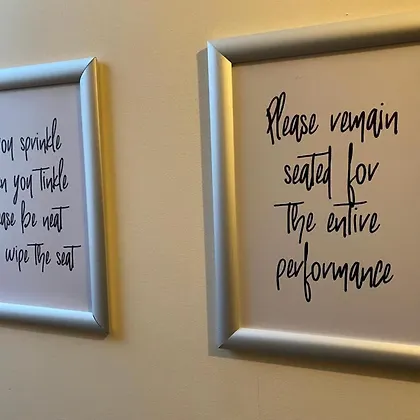 ou sprinkle
n you Tinkle
ase be neat
wipe The seat
Please remain
seated for
The entire
performance